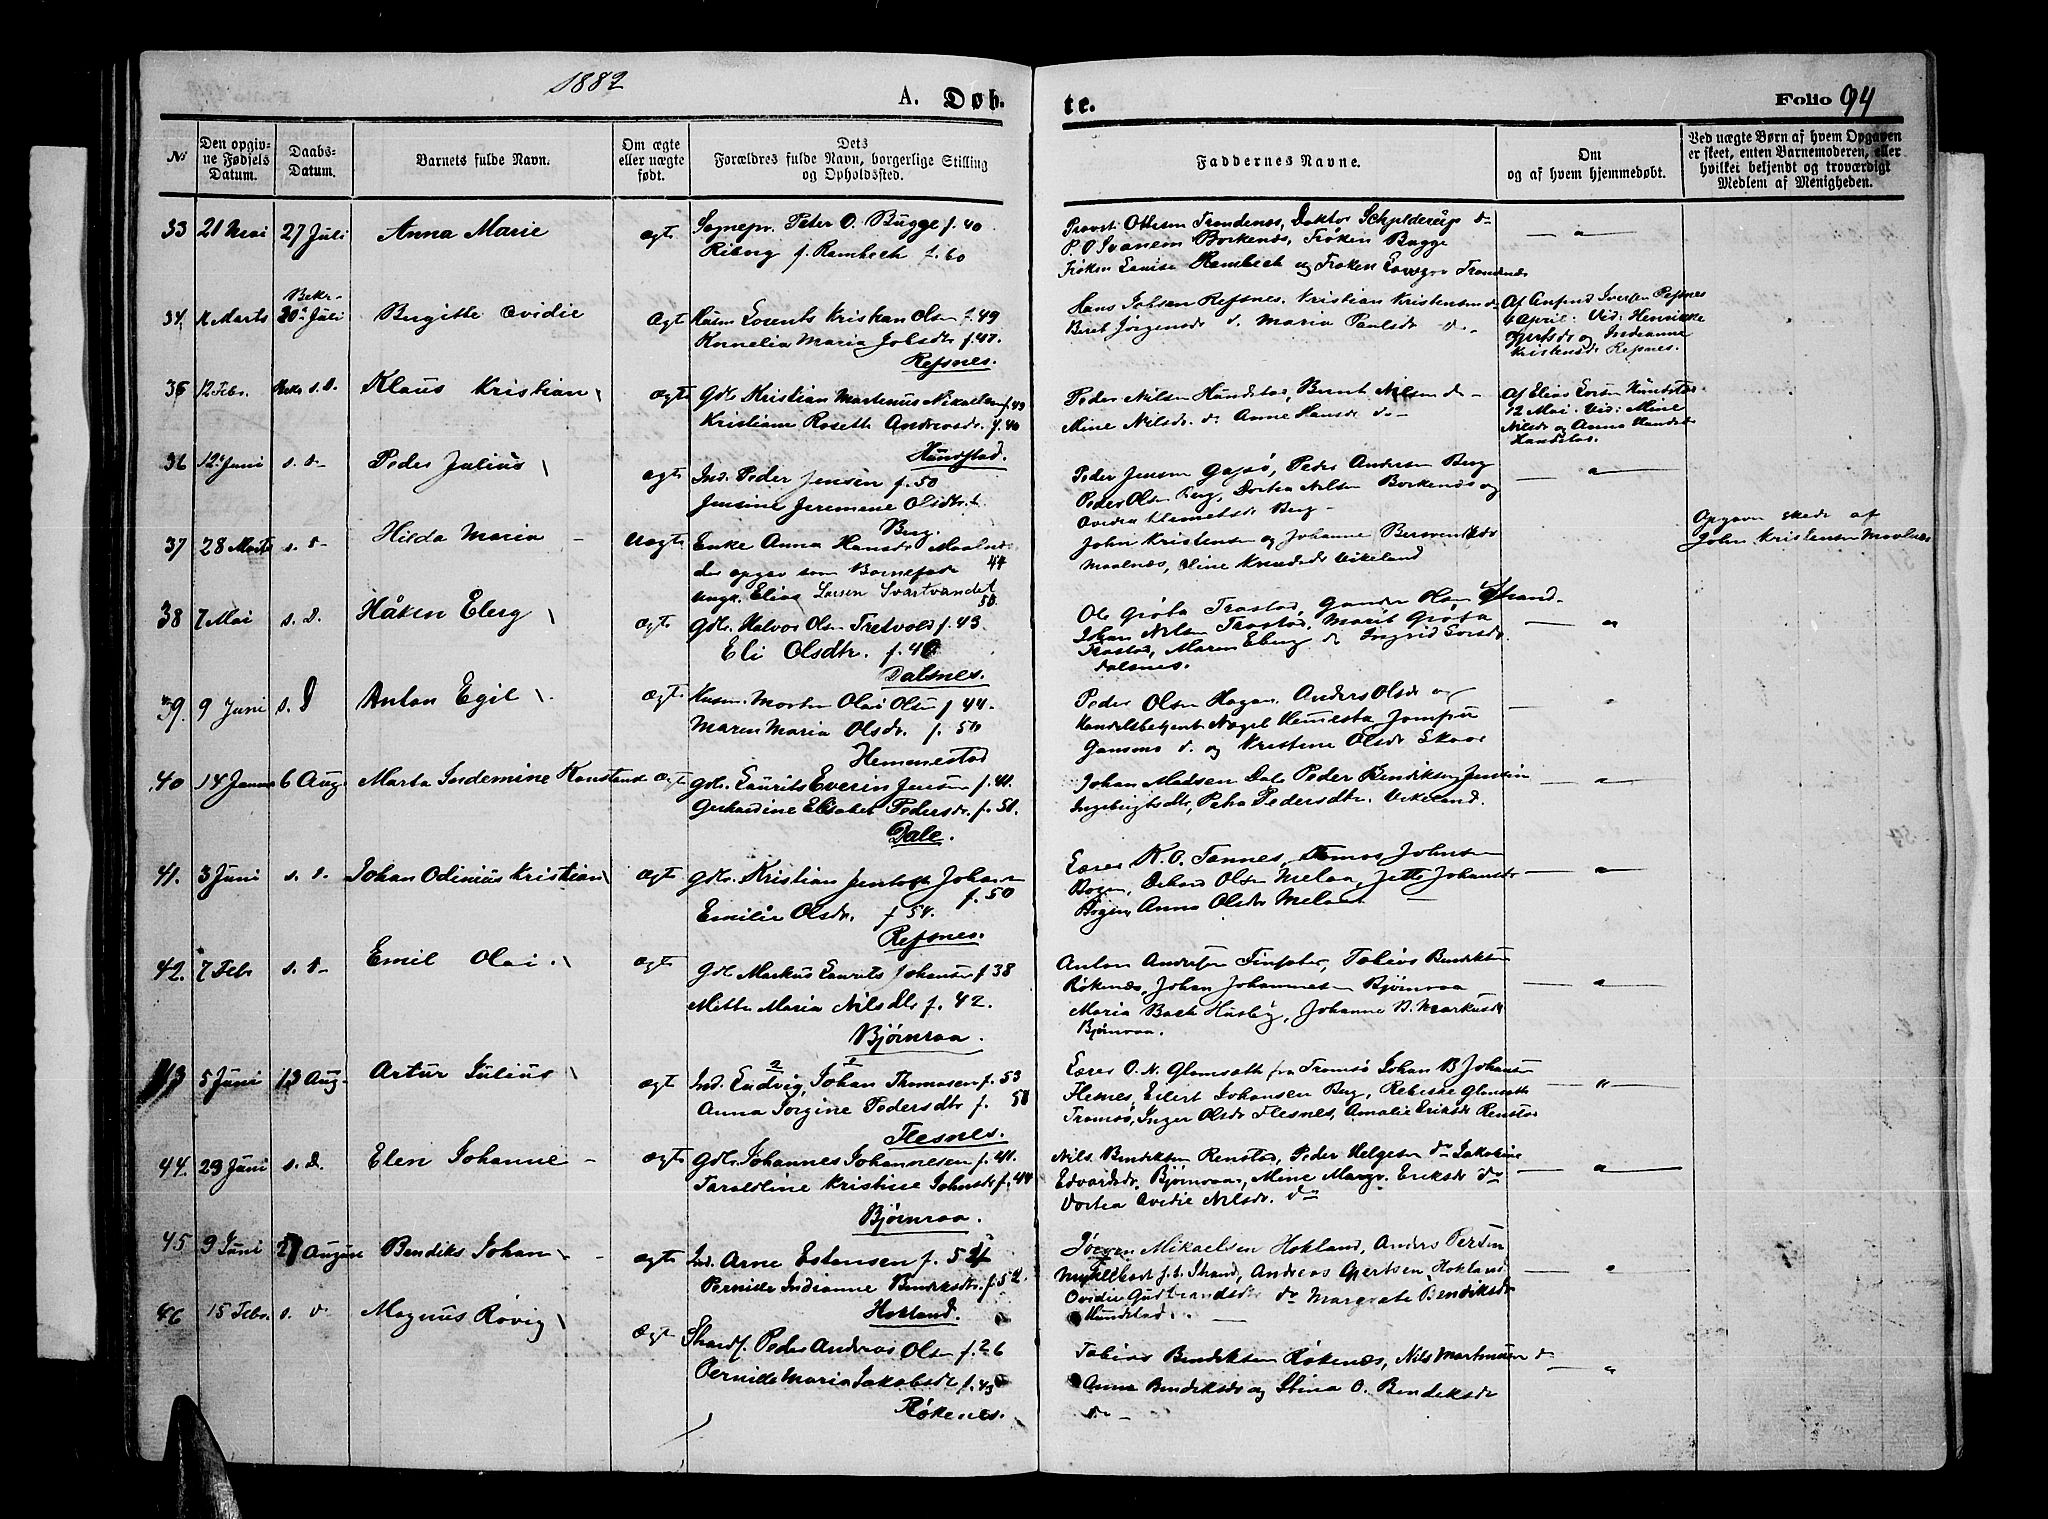 1882
A. Døb-
te.
Folio 94
No
Den opgiv-
ne Fødsels
Datum.
Daabs-
Datum.
Barnets fulde Navn.
Om ægte
eller uægte
født.
Dets
Forældres fulde Navn, borgerlige Stilling
og Opholdssted.
Faddernes Navne.
Om
og af hvem hjemmedøbt.
Ved uægte Børn af hvem Opgaven
er skeet, enten Barnemoderen, eller
hvilket bekjendt og troværdigt
Medlem af Menigheden.
33 21 Mai 27 Juli Anna Marie ægt. Sognepr. Peter O. Bugge f. 40
f. Rambech f. 60
Provst Ottesen Trondenes, Doktor Schjelderup do
Borkenes, Frøken Bugge
Frøken Louise Rambech og Frøken Trondenes
34. Marts Bekr. 30 Juli Birgitte Ovidie ægt. Husm. Lorents Kristian Olsen f. 49
Kornelia Maria Jobsdtr f. 47.
Refsnes.
Hans Jobsen Refsnes. Kristian Kristensen do
Beret Jørgensdr do. Maria Paulsdr do
Af Iversen Refsnes
April: Vid: Henrikke
og Indianne
Kristensdr Refsnes.
35 12 Febr. Bekr. s. D. Klaus Kristian ægte Gdr. Kristian Martenus Mikaelsen f. 43
Kristiane Rosette Andreasdr. f. 40
Hundstad.
Peder Nilsen Hundstad, Bernt Nilsen do
Mine Nilsdr. do Anne Hansdr do
Af Elias
12 Mai. Vid: Mine
Nilsdr og Anna
Hundstad.
36 12 Juni s. D. Peder Julius ægt. Ind. Peder Jensen f. 50
Jensine Jeremine Olsdtr. f.
Berg.
Peder Jensen Gausø, Peder Andersen Berg
Peder Olsen Berg, Dortea Nilsen Borkenes og
Ovidia Klemetsdr Berg
37 28 Marts s. D. Hilda Maria uægte Enke Anna Hansdr Maalnes
der opgav som Barnefader 44
ungk. Elias Larsen Svartvandet
50.
John Kristensen og Johanne
Maalnes, Line Knudsdr Vikeland
Opgaven skede af
John Kristensen Maalnes
38 7 Mai s. D. Håken Elerg ægt. Gdr. Halvor Olsen Tretvold f. 43.
Eli Olsdtr. f. 40
Dalsnes.
Ole Grøta Trastad, Gunder Strand.
Johan Nilsen Trastad, Marit Grøta
Trastad, Maren Eberg do Ingrid Larsdr
Dalsnes.
39. 9 Juni s. D Anton Egil ægt. Husm. Morten Olai Olsen f. 44.
Maren Maria Olsdr. f. 50
Hemmestad
Peder Olsen Hagan, Anders Olsdr og
Handelsbetjent Nagel Hemmestad Jomfru
Gansmo do. og Kristine Olsdr Skaar
40 14 Januar 6 Aug. Marta Indemine Konstanse ægt. Gdr. Laurits Everin Jensen f. 41.
Gerhardine Elisabet Pedersdr. f. 51.
Dale.
Johan Madsen Dale Peder Bendiksen
Ingebrigtsdtr, Petra Pedersdtr. Vikeland.
41. 3 Juni s. D. Johan Odinius Kristian ægt. Gdr. Kristian Jentoft Johan
f. 50
Emilie Olsdr. f 54.
Refsnes.
Lærer K. O. Tannes, Tomas Johnsen
Bogen, Olsen Melaa, Jette Johansdr
Bogen, Anna Olsdr Melaa
42. 7 Febr. s. D. Emil Olai ægt. Gdr Markus Laurits Johansen f. 38
Mette Maria Nilsdtr f. 42.
Bjørnraa.
Anton Andersen Finsæter, Tobias Bendiksen
Røkenæs, Johan Johannesen Bjørnraa
Maria Bach Husby, Johanne D. Markusdr
Bjørnraa.
43 5 Juni 13 Aug. Artur Julius ægt Ind. Ludvig Johan Thomasen f. 53
Anna Jørgine Pedersdtr f. 58
Flesnes.
Lærer O. N. Glomsath fra Tromsø Johan B Johansen
Flesnes, Eilert Johansen Berg, Rebekke Glomsath
Tromsø, Inger Olsdr Flesnes, Amalie Eriksdr Renstad
44. 29 Juni s. D. Elen Johanne ægt Gdr. Johannes Johannesen f. 41.
Taraldine Kristine Johnsdr f. 44
Bjørnraa.
Nils Bendiksen Renstad, Peder Helgesen do Jakobine
Edvardsdr. Bjørnraa, Mine Margr. Eriksdr do
Dortea Ovidie Nilsdr. do
45 9 Juni 27 August Bendiks Johan ægt Ind. Arne Estensen f. 54
Pernille Indianne Bendiksdtr f. 52.
Hokland.
Jørgen Mikaelsen Hokland, Anders Persen
f. t. Strand, Andreas Gjertsen, Hokland
Ovidie Gudbrandsdr do Margrete Bendiksdr
Hundstad
46 15 Febr. s. D. Magnus Røvig ægt Strandf. Peder Andreas Olsen f. 26
Pernille Maria Jakobsdr f. 43
Røkenes.
Tobias Bendiksen Røkenæs, Nils Martinusen do
Anna Bendiksdr og Stina O. Bendiksdr
do